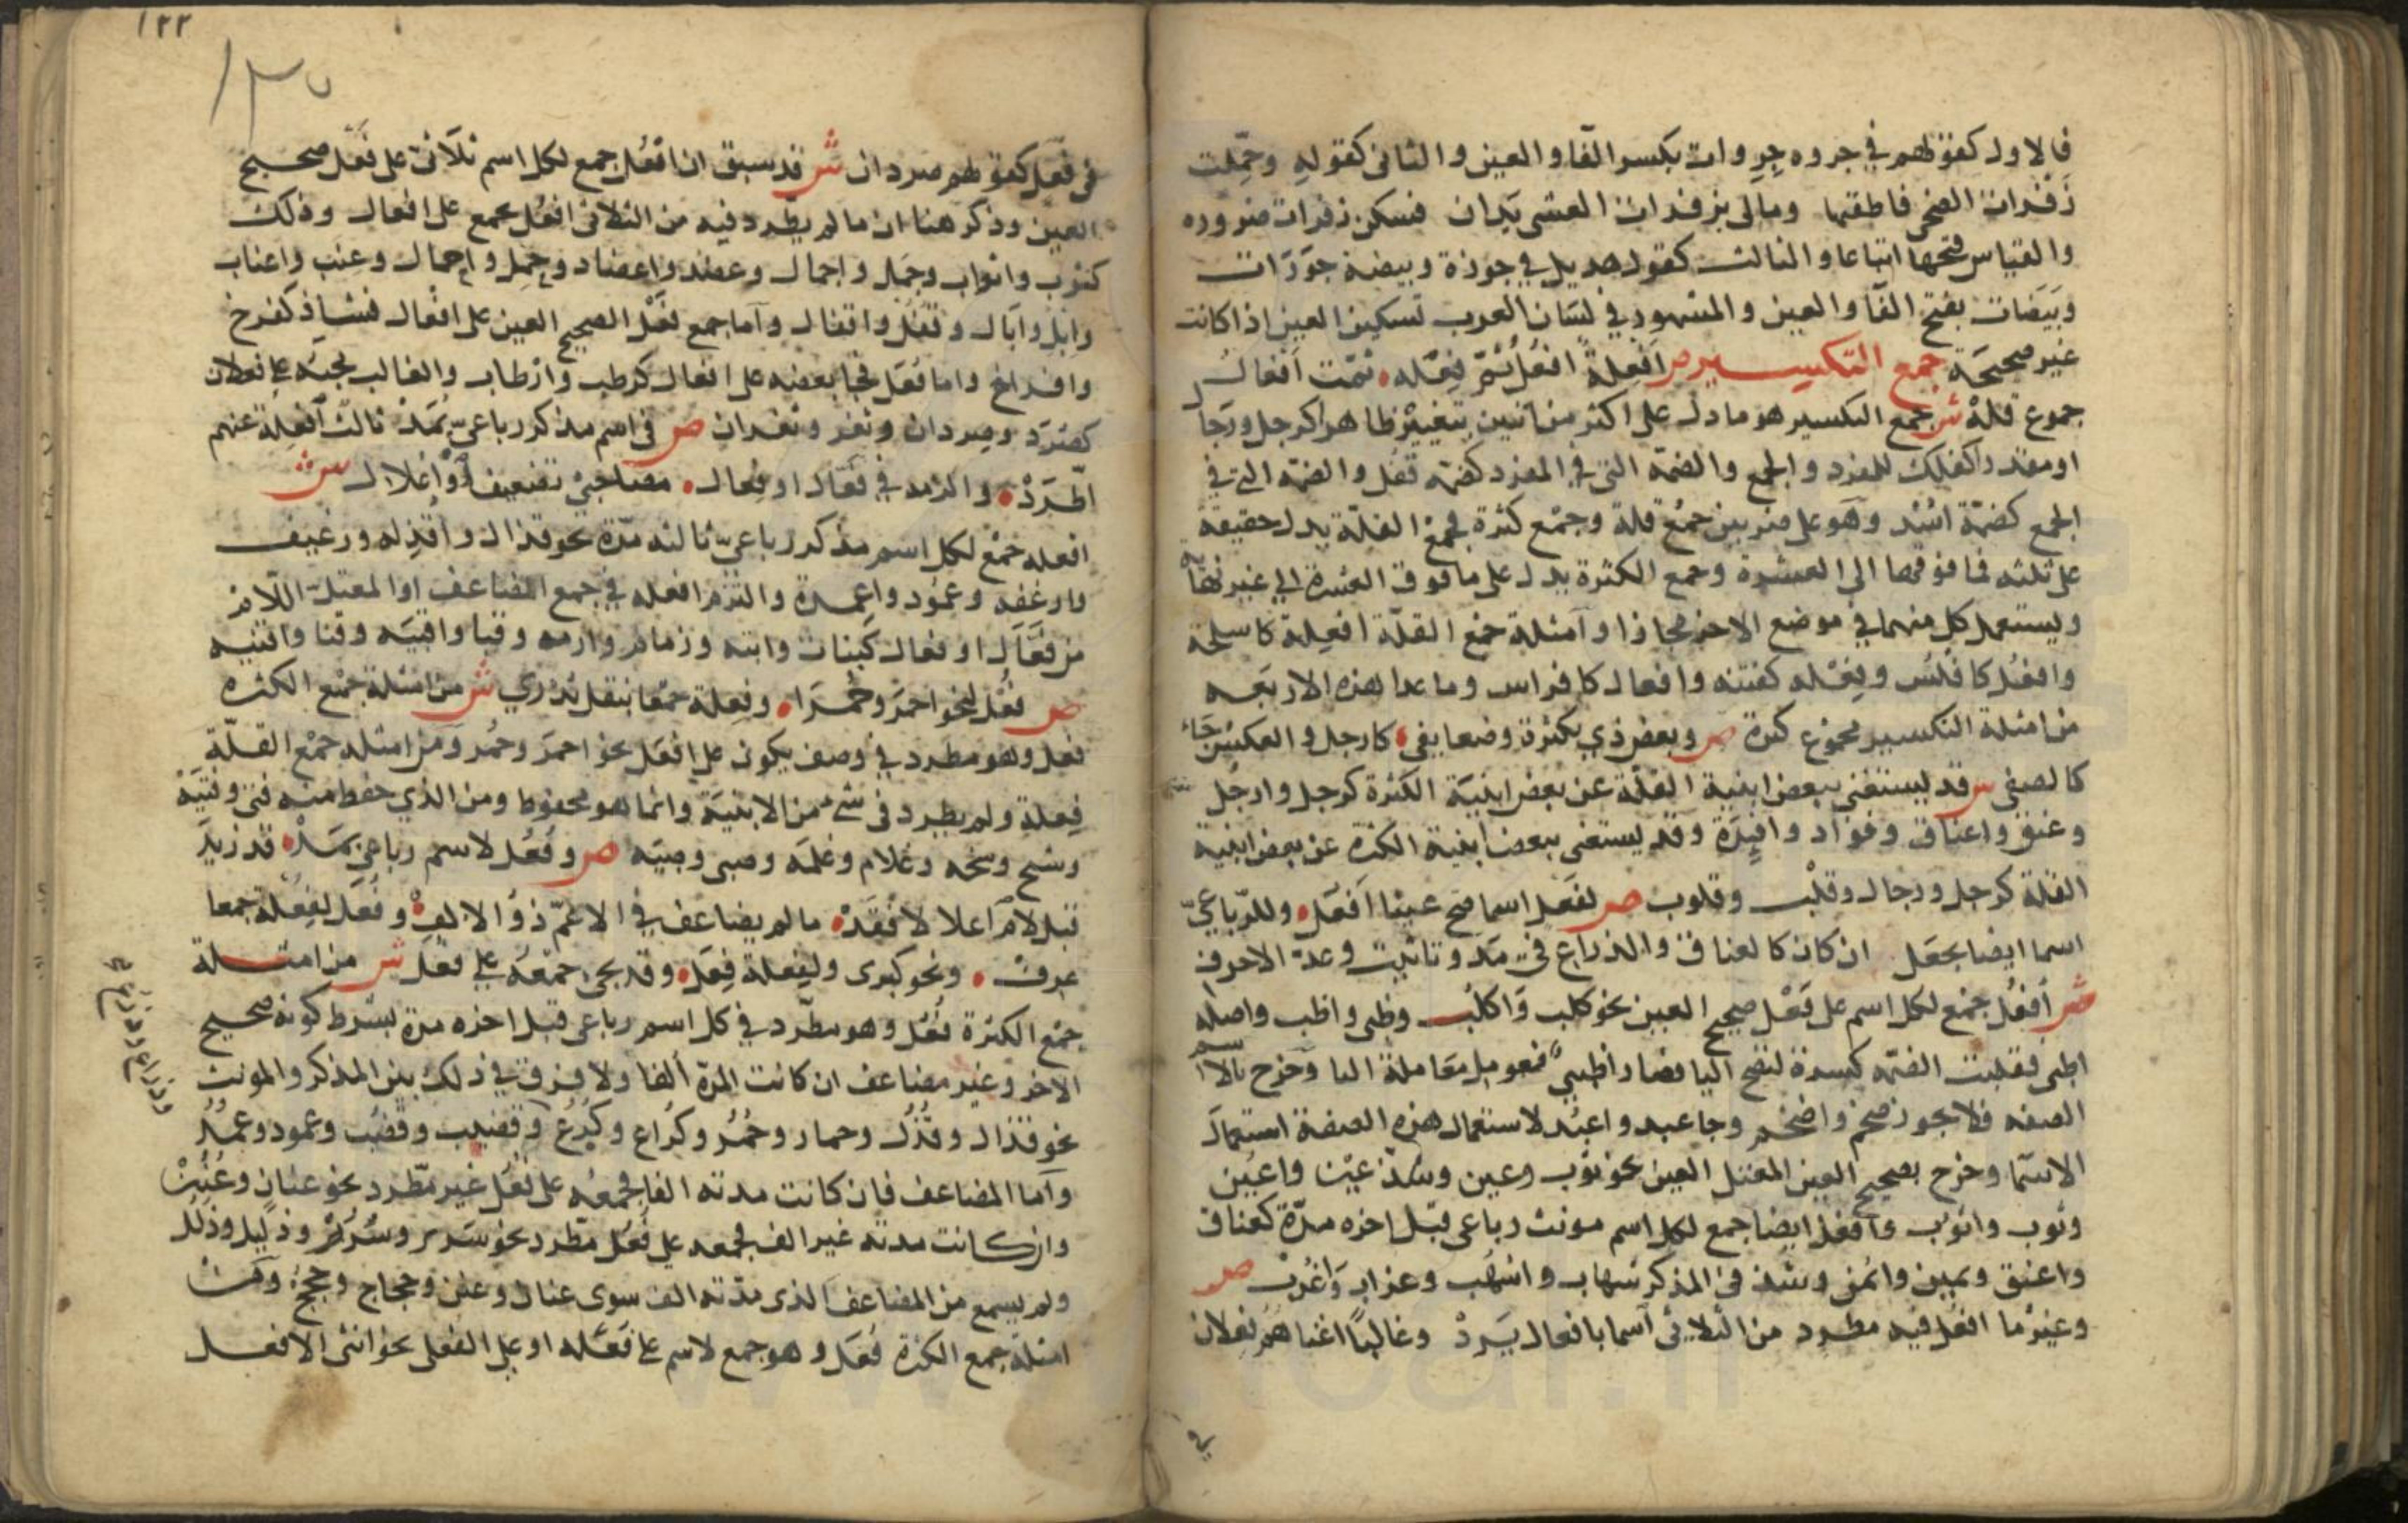 فالاول كقولهم في جروه جِرِوات بكسر الفا والعين والثاني كقوله وحمّلت
زَفْرات الضحى فاطقتها ومالى بزفرات العشى يَدان فسكن زفرات ضروره
والقياس فتحها اتباعا والثالث كقول هذيل في جوزة وبيضة جَوَزَات
وبَيَضات بفتح الفآ والعين والمشهور في لسَان العرب تسكين العين اذا كانت
غير صحيحَة جمع التكسير ص أَفعِلةٌ افعُلُ ثُمّ فِعْله ثمّت أفعالُ
جموع قلةْ ش جمع التكسير هو ما دل على اكثر من اثنين بتغيير ظاهر كرجل ورجا
او مقدر كفلك للمفرد والجمع والضمّة التى في المفرد كضمّة قفل والضمّة التي في
الجمع كضمّة اسْد وهو على ضربين جمْع قلة وجمْع كثرة فجمْع القلّة يدل حقيقة
على ثلثه فما فوقها الى العشرة وجمع الكثرة يدل على ما فوق العشرة الي غير نهآية
ويستعمل كل منهما في موضع الاخر مجازا وآمثلة جمْع القلّة افعِلة كاسلحة
وافعُل كافلُس وفِعْله كفتنه وافعال كافراس وما عدا هذه الاربَعه
من امثلة التكسير لجموع كثرة ص وبعض ذي بكثرة وضعا يفي كارجل والعكس جَاء
كالصفى ش قد يستغنى ببعض ابنية القلّة عن بعض ابنيَة الكثرة كرِجل وارجُل
وعنق واعناق وفواد وافيِدَة وقد يستغنى ببعض ابنية الكثرة عن بعض ابنية
القلة كرجل ورجال وقلْب وقلوب ص لفَعل اسما صح عينا أفعُل وللرّباعيّ
اسما ايضا يجعَل ان كان كالعناق والذراع في مَد وتانيث وعدّ الاحرف
ش أفعُل جمْع لكل اسم على فَعْل صحيح العين نحو كلب وَاكلُب وظبى واظب واصله
اظبى فقلبت الضمّه كسرة لتصح اليا فصار اظبي فعومل مَعاملة اليا وخرج بالاسم
الصفه فلا يجوز ضخم واضخُم وجا عبد واعبُد لاستعمال هذه الصفة استعمال
الاسمَا وخرج بصحيح العين المعتل العين نحو ثوب وعين وشذّ عيْن واعيُن
وثوب واثوُب وأفعُل ايضا جمع لكل اسم مونث رباعى قبل اخره مدّة كعناق
واعنق ويمين وائمن وشذ في المذكر شهاب واشْهُب وغراب وَاغرُب ص
وغيْر ما افعُل فيه مطرد من الثلاثى آسما بافعال يَرِدْ وغالباً اغناهُمُ فِعلان
في
١٢٢
١٣٥
في فُعَل كقولهم صردان ش قد سبق ان افعُل جمع لكل اسم ثلاثى على فَعْل صحيح
العين وذكر هنا ان ما لم يطّرد فيه من الثلاثى افعُل يجمع على افعال وذلك
كثوب واثواب وجمَل واجمال وعضد واعضاد وحِمل واحمال وعنب واعناب
وابل وآبال وقُفْل واقفال وآما جمع فَعْل الصحيح العين على افعال فشاذ كفرخ
وافراخ واما فُعَل فجا بعضه على افعال كرطب وارْطاب والغالب مجيئه على فعلان
كصُرَد وصِردان ونغر ونغران ص في اسم مذكر رباعيّ بمَدْ ثالث أفعِلة عنهم
اطّرَدْ والزمه في فَعال او فِعال مصاحبَيْ تضعيف أَوْ أعلال ش
افعله جمْع لكل اسم مذكر رباعيّ ثالثه مدّة نحو قذال واقذِله ورغيف
وارغفه وعمُود واعمدة والتزم افعله في جمع المضاعف او المعتل اللام
من فَعَال او فعال كبتات وابته وزمام وازمه وقبا واقبيَه وفنا وافنيه
ص فُعْل لنحو احمَرَ وحَمْرَا وفِعلة جمْعا بنقل يدْري ش من امثلة جمْع الكثره
فعل وهو مطرد في وصف يكون على افعَل نحو احمَرَ وحُمر ومن امثله جمْع القلّة
فِعلة ولم يطرد في شئ من الابنيَة وانما هو محفوظ ومن الذي حفظ منه فتى وفتيَة
وشيخ وشيخه وغلام وغلمه وصبى وصبيَه ص وفُعُل لاسم رباعي بمَدْ قد زيدَ
قبل لام آعلالا فَقَدْ ما لم يضاعف في الاعمّ ذوُ الالفِ وفُعَل لفُعْلة جمعا
عرفْ ونحو كبرى ولفِعلة فِعَل وقد يجى جمْعُه على فعَل ش من امثلة
جمْع الكثرة فُعُل وهو مطّرد في كل اسم رباعى قبل اخره مدة بشرط كونه صحيح
الاخر وغير مضاعف ان كانت المدّة ألفا ولا فرق في ذلك بين المذكر والمونث
نحو قذال وقذُل وحمار وحمُر وكراع وكُرُع وقضيب وقضُب وعمود وعمُد
وآما المضاعف فان كانت مدته الفا فجمعُه على فعُل غير مطّرد نحو عنان وعُنُن
وان كانت مدته غير الف فجمعه على فُعُل مطّرد نحو سَرير وسُرُر وذليل وذلُل
ولم يسمع من المضاعف الذى مدّته الف سوى عنان وعنن وحجاج وحججُ ومن
امثلة جمع الكثرة فُعَل وهو جمع لاسم على فَعْله او على الفعلى نحو انثى الافعل